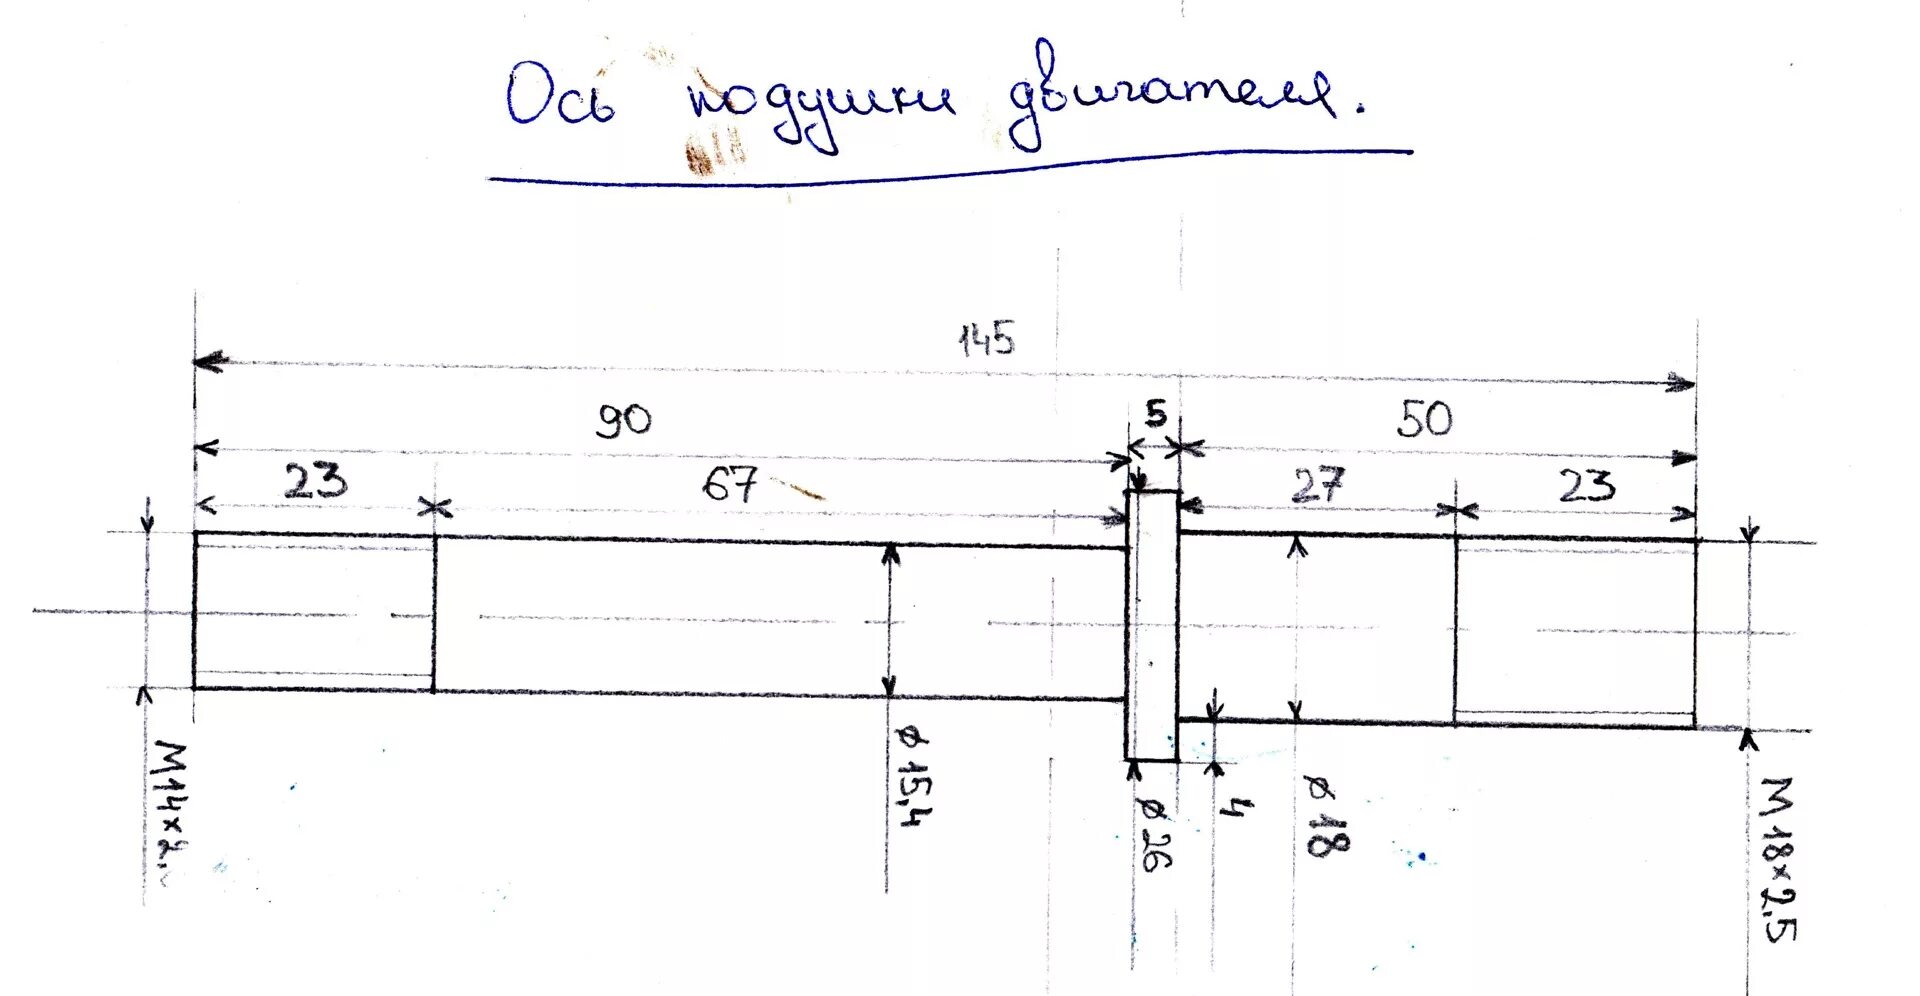 Ось подушки двигателя.
145
90
5
50
23
67
27
23
ø 15,4
ø 26
4
ø 18
M18×2,5